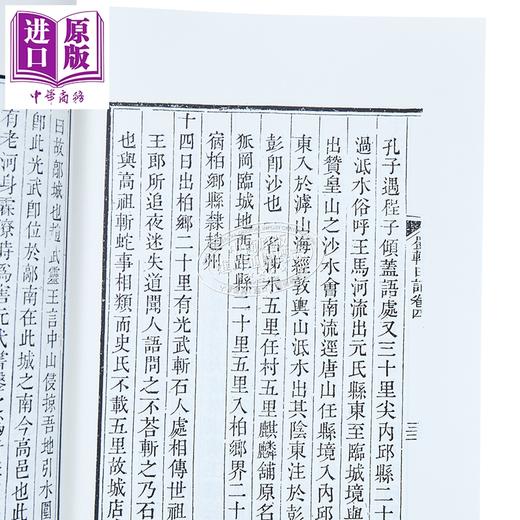 进口
原版
中華商務
孔子遇程子傾蓋語處又三十里尖內邱縣二十
過泜水俗呼王馬河流出元氏縣東至臨城境與
出贊皇山之沙水會南流逕唐山任縣境入內邱
東入於滹山海經敦輿山泜水出其陰東注於彭
彭卽沙也 水五里任村五里麒麟舖原名
岡臨城地西距縣二十里五里入柏鄉界二十
宿柏鄉縣隸趙州
十四日出柏鄉二十里有光武斬石人處相傳世祖
王郎所追夜迷失道問人語問之不荅斬之乃石
也與高祖斬蛇事相類而史氏不載五里故城店
軒日記卷四
三三
曰故鄗城也趙武靈王言中山侵掠吾地引水圍
卽此光武卽位於鄗南在此城之南今高邑也此
有老河身霖潦時爲害元